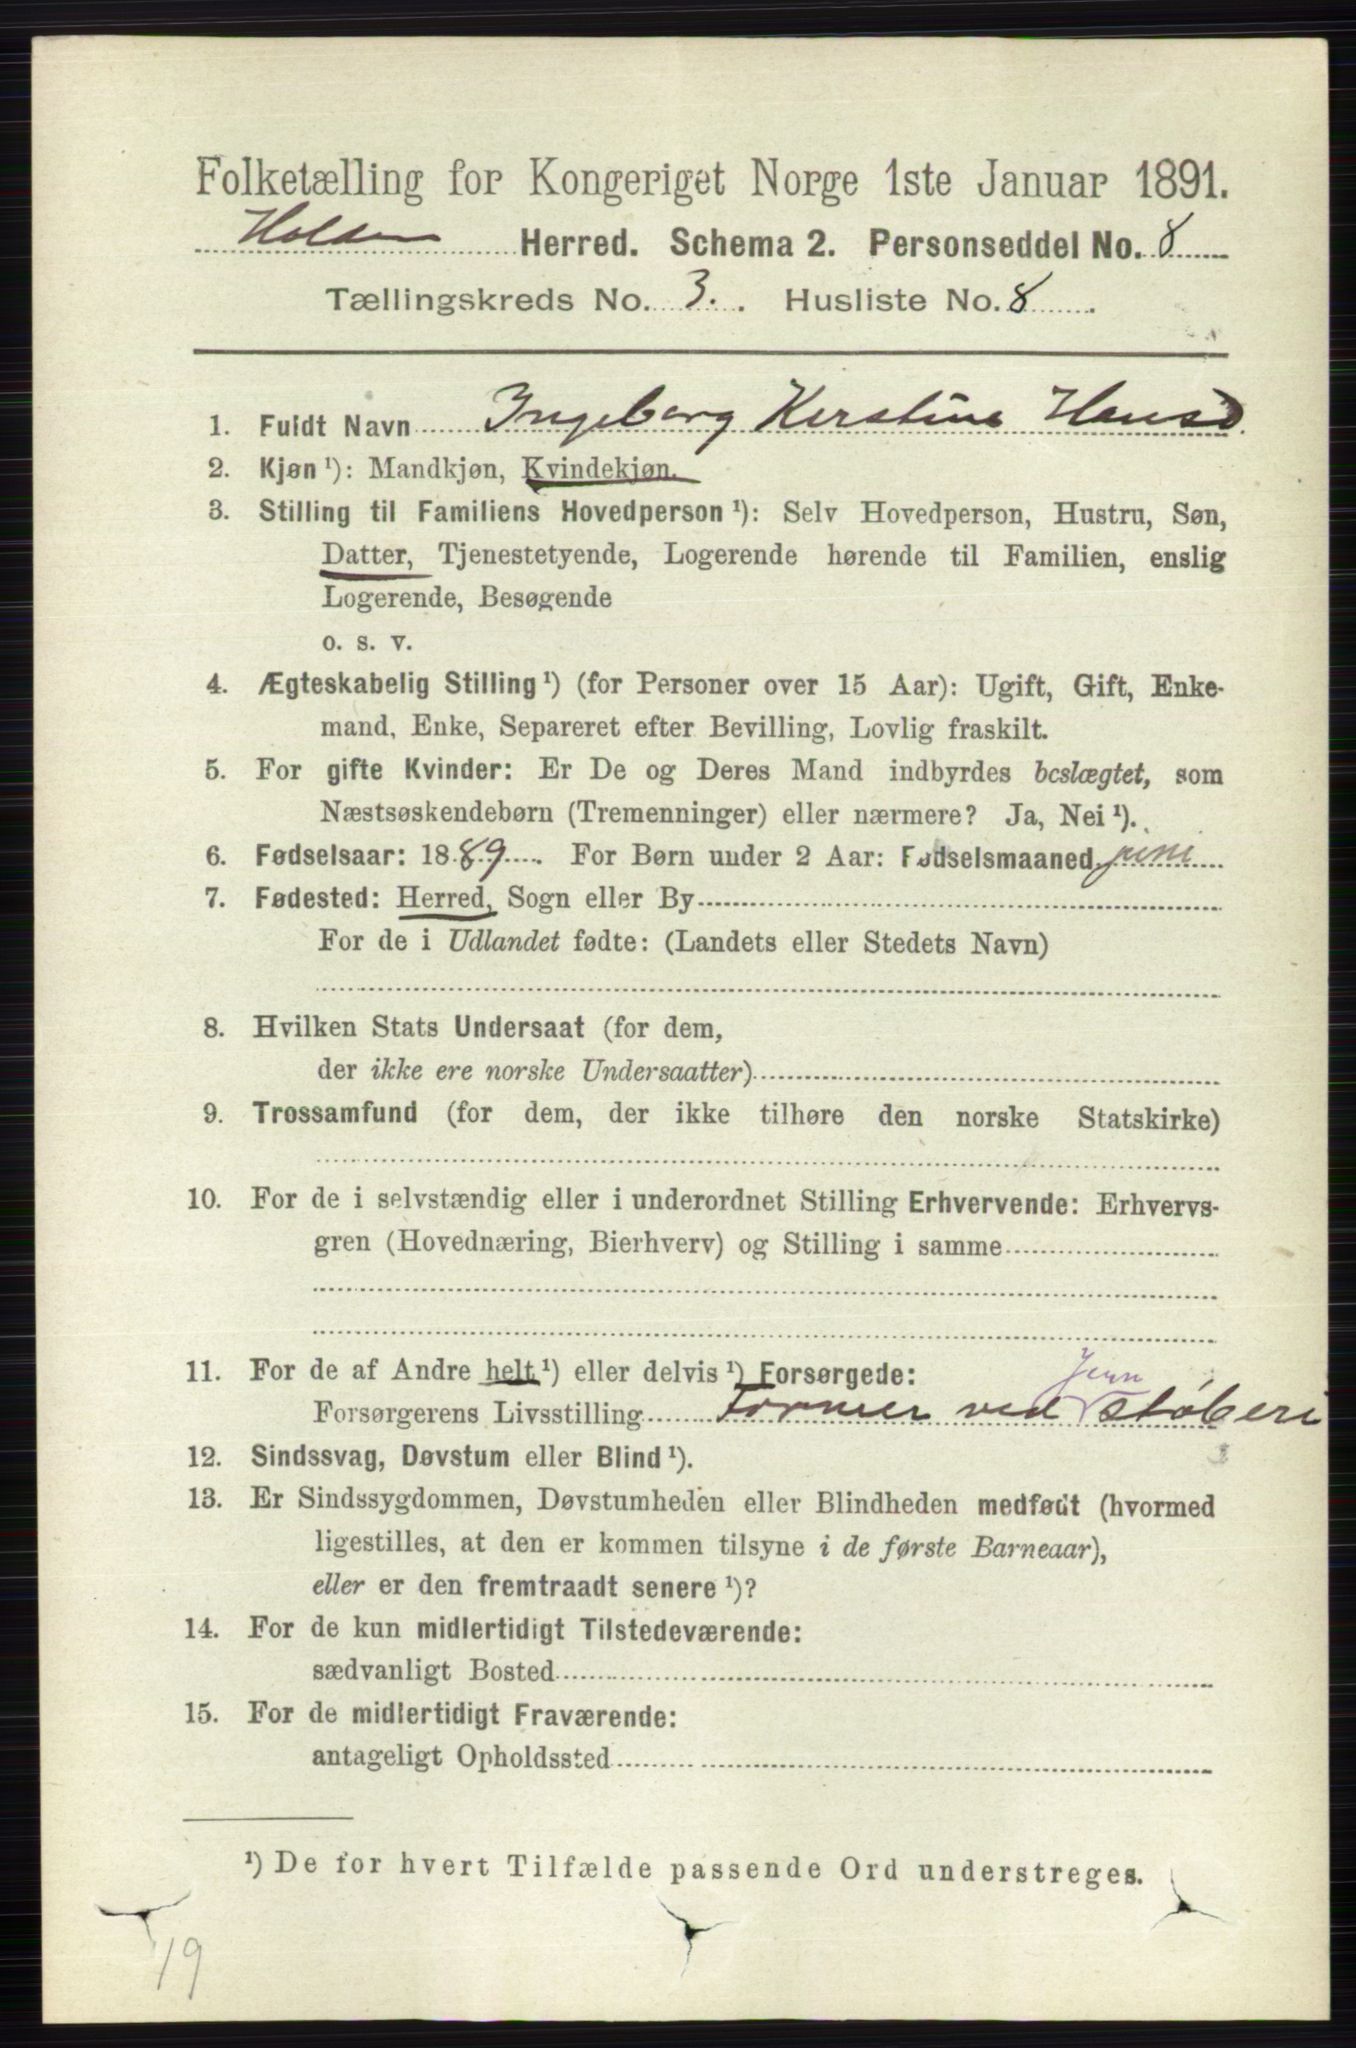 Folketælling for Kongeriget Norge 1ste Januar 1891.
Holden Herred. Schema 2. Personseddel No. 8
Tællingskreds No. 3. Husliste No. 8
1. Fuldt Navn Ingeborg Kirstine Hansd
2. Kjøn ¹): Mandkjøn, Kvindekjøn.
3. Stilling til Familiens Hovedperson ¹): Selv Hovedperson, Hustru, Søn,
Datter, Tjenestetyende, Logerende hørende til Familien, enslig
Logerende, Besøgende
o. s. v.
4. Ægteskabelig Stilling ¹) (for Personer over 15 Aar): Ugift, Gift, Enke-
mand, Enke, Separeret efter Bevilling, Lovlig fraskilt.
5. For gifte Kvinder: Er De og Deres Mand indbyrdes beslægtet, som
Næstsøskendebørn (Tremenninger) eller nærmere? Ja, Nei ¹).
6. Fødselsaar: 1889. For Børn under 2 Aar: Fødselsmaaned juni
7. Fødested: Herred, Sogn eller By
For de i Udlandet fødte: (Landets eller Stedets Navn)
8. Hvilken Stats Undersaat (for dem,
der ikke ere norske Undersaatter)
9. Trossamfund (for dem, der ikke tilhøre den norske Statskirke)
10. For de i selvstændig eller i underordnet Stilling Erhvervende: Erhvervs-
gren (Hovednæring, Bierhverv) og Stilling i samme
11. For de af Andre helt ¹) eller delvis ¹) Forsørgede:
Jern
Forsørgerens Livsstilling Former ved støberi
12. Sindssvag, Døvstum eller Blind ¹).
13. Er Sindssygdommen, Døvstumheden eller Blindheden medfødt (hvormed
ligestilles, at den er kommen tilsyne i de første Barneaar),
eller er den fremtraadt senere ¹)?
14. For de kun midlertidigt Tilstedeværende:
sædvanligt Bosted
15. For de midlertidigt Fraværende:
antageligt Opholdssted
¹) De for hvert Tilfælde passende Ord understreges.
19